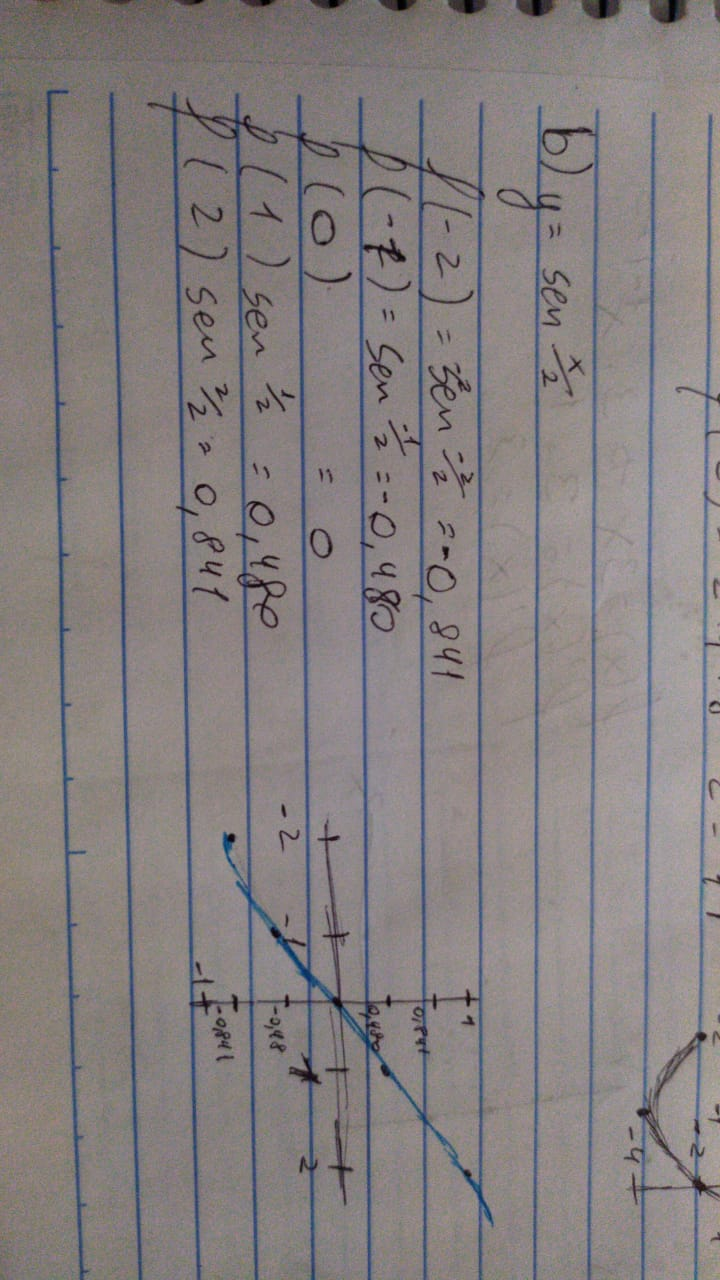 b) y = sen x/2
f(-2) = sen -2/2 = -0,841
f(-1) = sen -1/2 = -0,480
f(0) = 0
f(1) sen 1/2 = 0,480
f(2) sen 2/2 = 0,841
1
0,841
0,480
-2 -1 1 2
-0,48
-0,841
-1
-2
-4